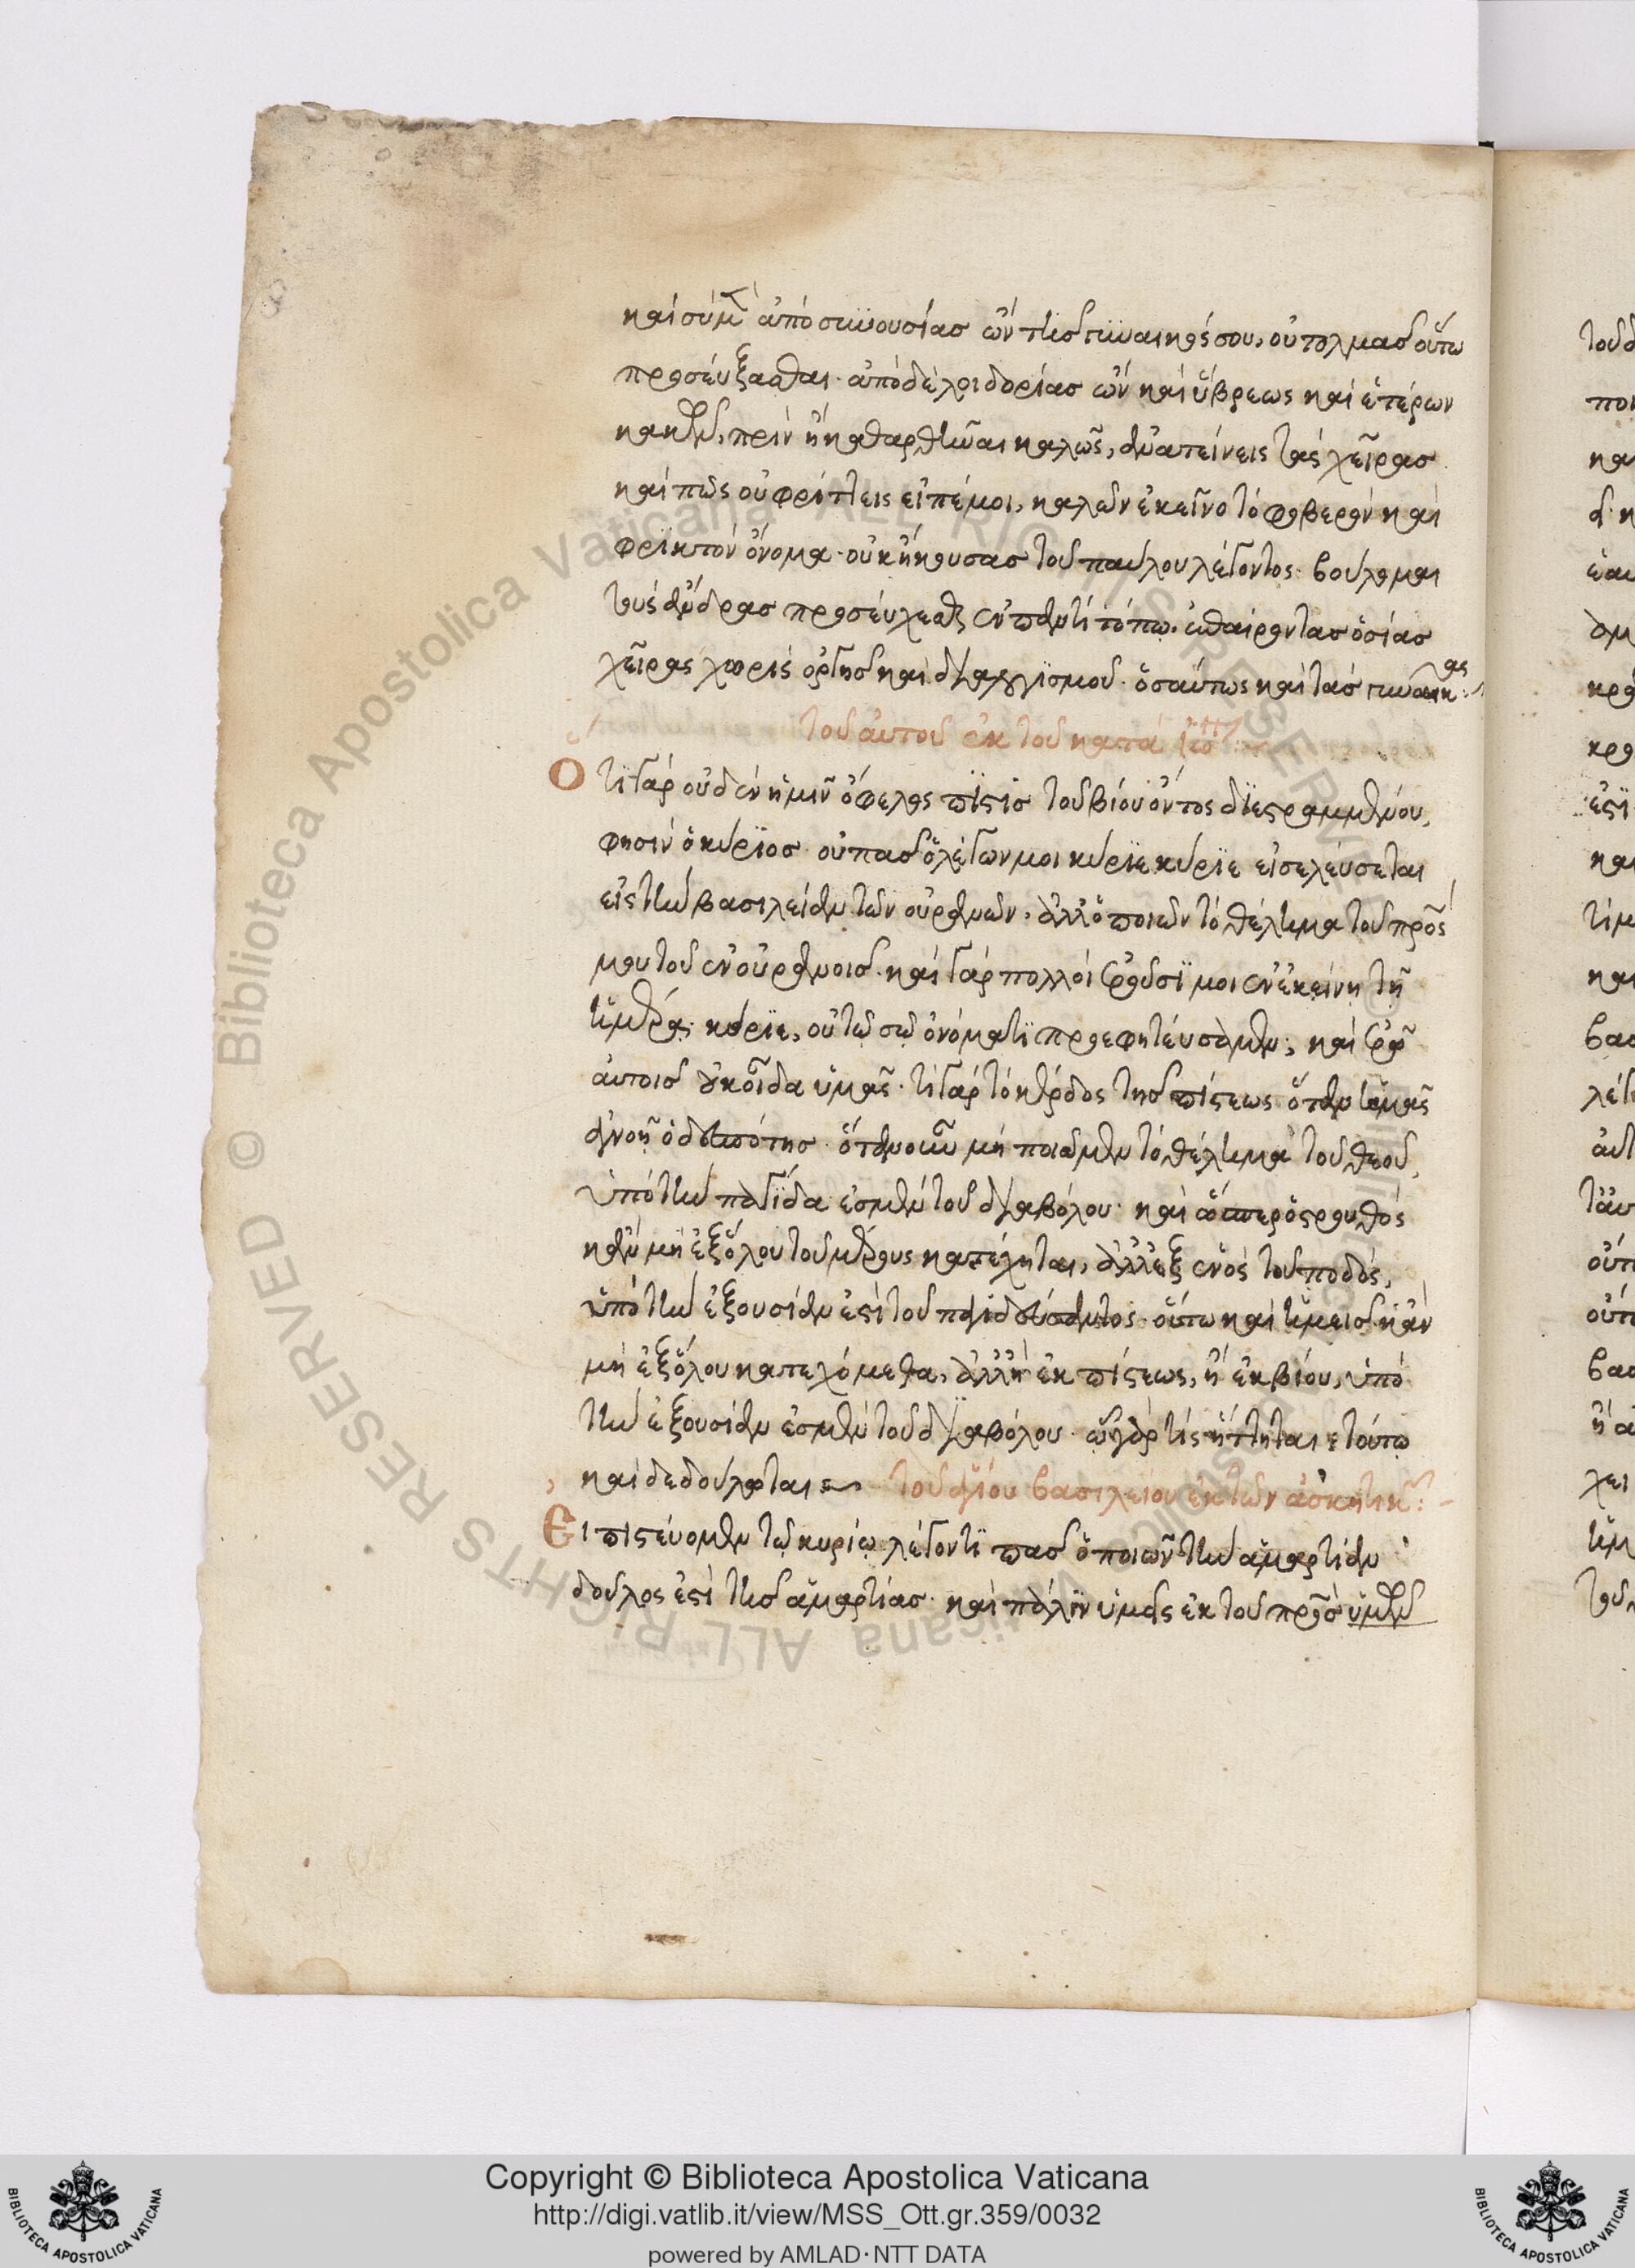 καί σύ μὲν ἀπό συνουσίας ὤν τῆς γυναικός σου, οὐ τολμᾶς οὔτω
προσεύξασθαι· ἀπό δέ λοιδορίας ὤν καί ὕβρεως καί ἑτέρων
κακῶν, πρίν ἤ καθαρθῆναι καλῶς, ἀνατείνεις τάς χεῖρας
καί πῶς οὐ φρίττεις εἰπέ μοι, καλῶν ἐκεῖνο τό φοβερόν καί
φρικτόν ὄνομα· οὐκ ἤκουσας τοῦ παύλου λέγοντος· βούλομαι
τούς ἄνδρας προσεύχεσθαι ἐν παντί τόπω· ἐπαίροντας ὁσίας
χεῖρας χωρίς ὀργῆς καί διαλογισμοῦ· ὡσαύτως καί τάς γυναῖκας:
τοῦ αὐτοῦ ἐκ τοῦ κατά
Ὅτι γάρ οὐδέν ἡμῖν ὄφελος πίστις τοῦ βίου ὄντος διεστραμμένου,
φησίν ὁ κύριος· οὐ πᾶς ὁ λέγων μοι κύριε κύριε εἰσελεύσεται
εἰς τήν βασιλείαν τῶν οὐρανῶν· ἀλλ' ὁ ποιῶν τό θέλημα τοῦ πρός
μου τοῦ ἐν οὐρανοῖς· καί γάρ πολλοί ἐροῦσί μοι ἐν ἐκείνη τῆ
ἡμέρα· κύριε, οὐ τῶ σῶ ὀνόματι προεφητεύσαμεν, καί ἐρῶ
αὐτοῖς οὐκ οἶδα ὑμᾶς· τί γάρ τό κέρδος τῆς πίστεως ὅταν ἡμᾶς
ἀγνοῆ ὁ δεσπότης· ὅταν οὖν μή ποιῶμεν τό θέλημα τοῦ θεοῦ,
ὑπό τήν παγίδα ἐσμέν τοῦ διαβόλου· καί ὥσπερ ὁ στρουθός
κἄν μή ἐξ ὅλου τοῦ μέρους κατέχηται, ἀλλ' ἐξ ἑνός τοῦ ποδός,
ὑπό τήν ἐξουσίαν ἐστί τοῦ παγιδεύσαντος· οὕτω καί ἡμεῖς κἄν
μή ἐξ ὅλου κατεχόμεθα, ἀλλ' ἤ ἐκ πίστεως, ἤ ἐκ βίου, ὑπό
τήν ἐξουσίαν ἐσμέν τοῦ διαβόλου· ὧ γάρ τίς ἥττηται, τούτω
καί δεδούλωται τοῦ ἁγίου βασιλείου ἐκ τῶν ἀσκητικ:
Εἰ πιστεύομεν τῶ κυρίω λέγοντι πᾶς ὁ ποιῶν τήν ἁμαρτίαν
δοῦλος ἐστί τῆς ἁμαρτίας· καί πάλιν ὑμεῖς ἐκ τοῦ πρός ὑμῶν
τοῦ δ
Copyright © Biblioteca Apostolica Vaticana
http://digi.vatlib.it/view/MSS_Ott.gr.359/0032
powered by AMLAD·NTT DATA
BIBLIOTECA APOSTOLICA VATICANA
BIBLIOTECA APOSTOLICA VATICANA
© Biblioteca Apostolica Vaticana ALL RIGHTS RESERVED